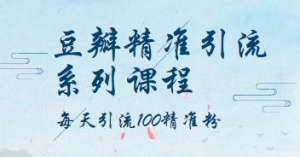 豆瓣精准引流
系列课程
每天引流100精准粉